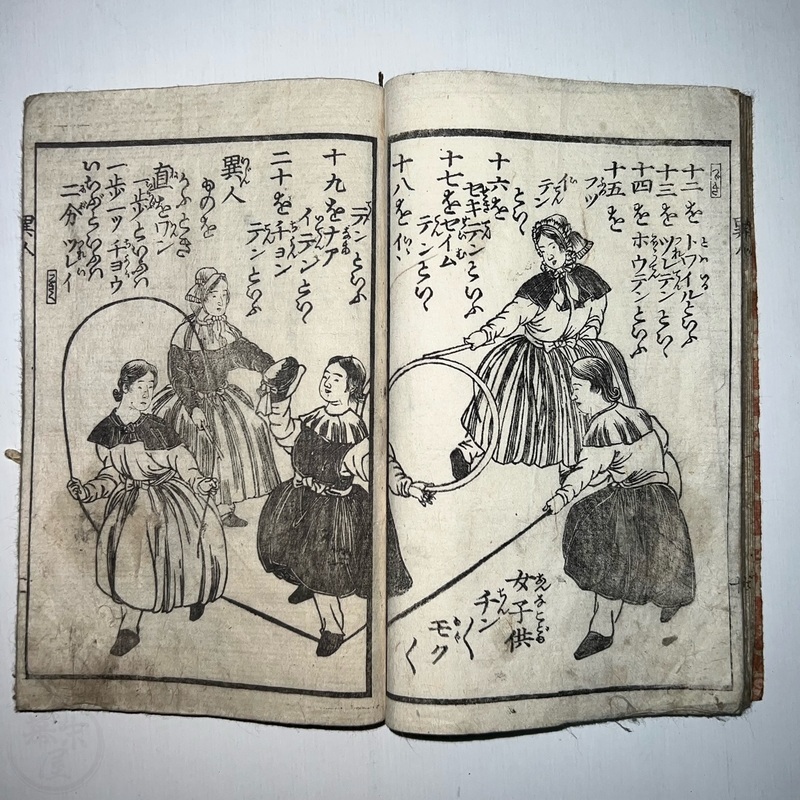 つゞき
十二を トワイルといふ
十三を ツレテンといふ
十四を ホウテンといふ
十五を
フツ
イテン
といふ
十六を
セキテンといふ
十七をセイム
テンといふ
十八を イ
テンといふ
十九をナア
イテンといふ
二十をチヨン
テンといふ
異人
ものを
かふとき
直をワン
一歩といふハ
一歩一ツ チヨウ
いちぶといふハ
二分 ツレイ
つゞく
女子供
チン〳〵
モク〳〵
異人
異人